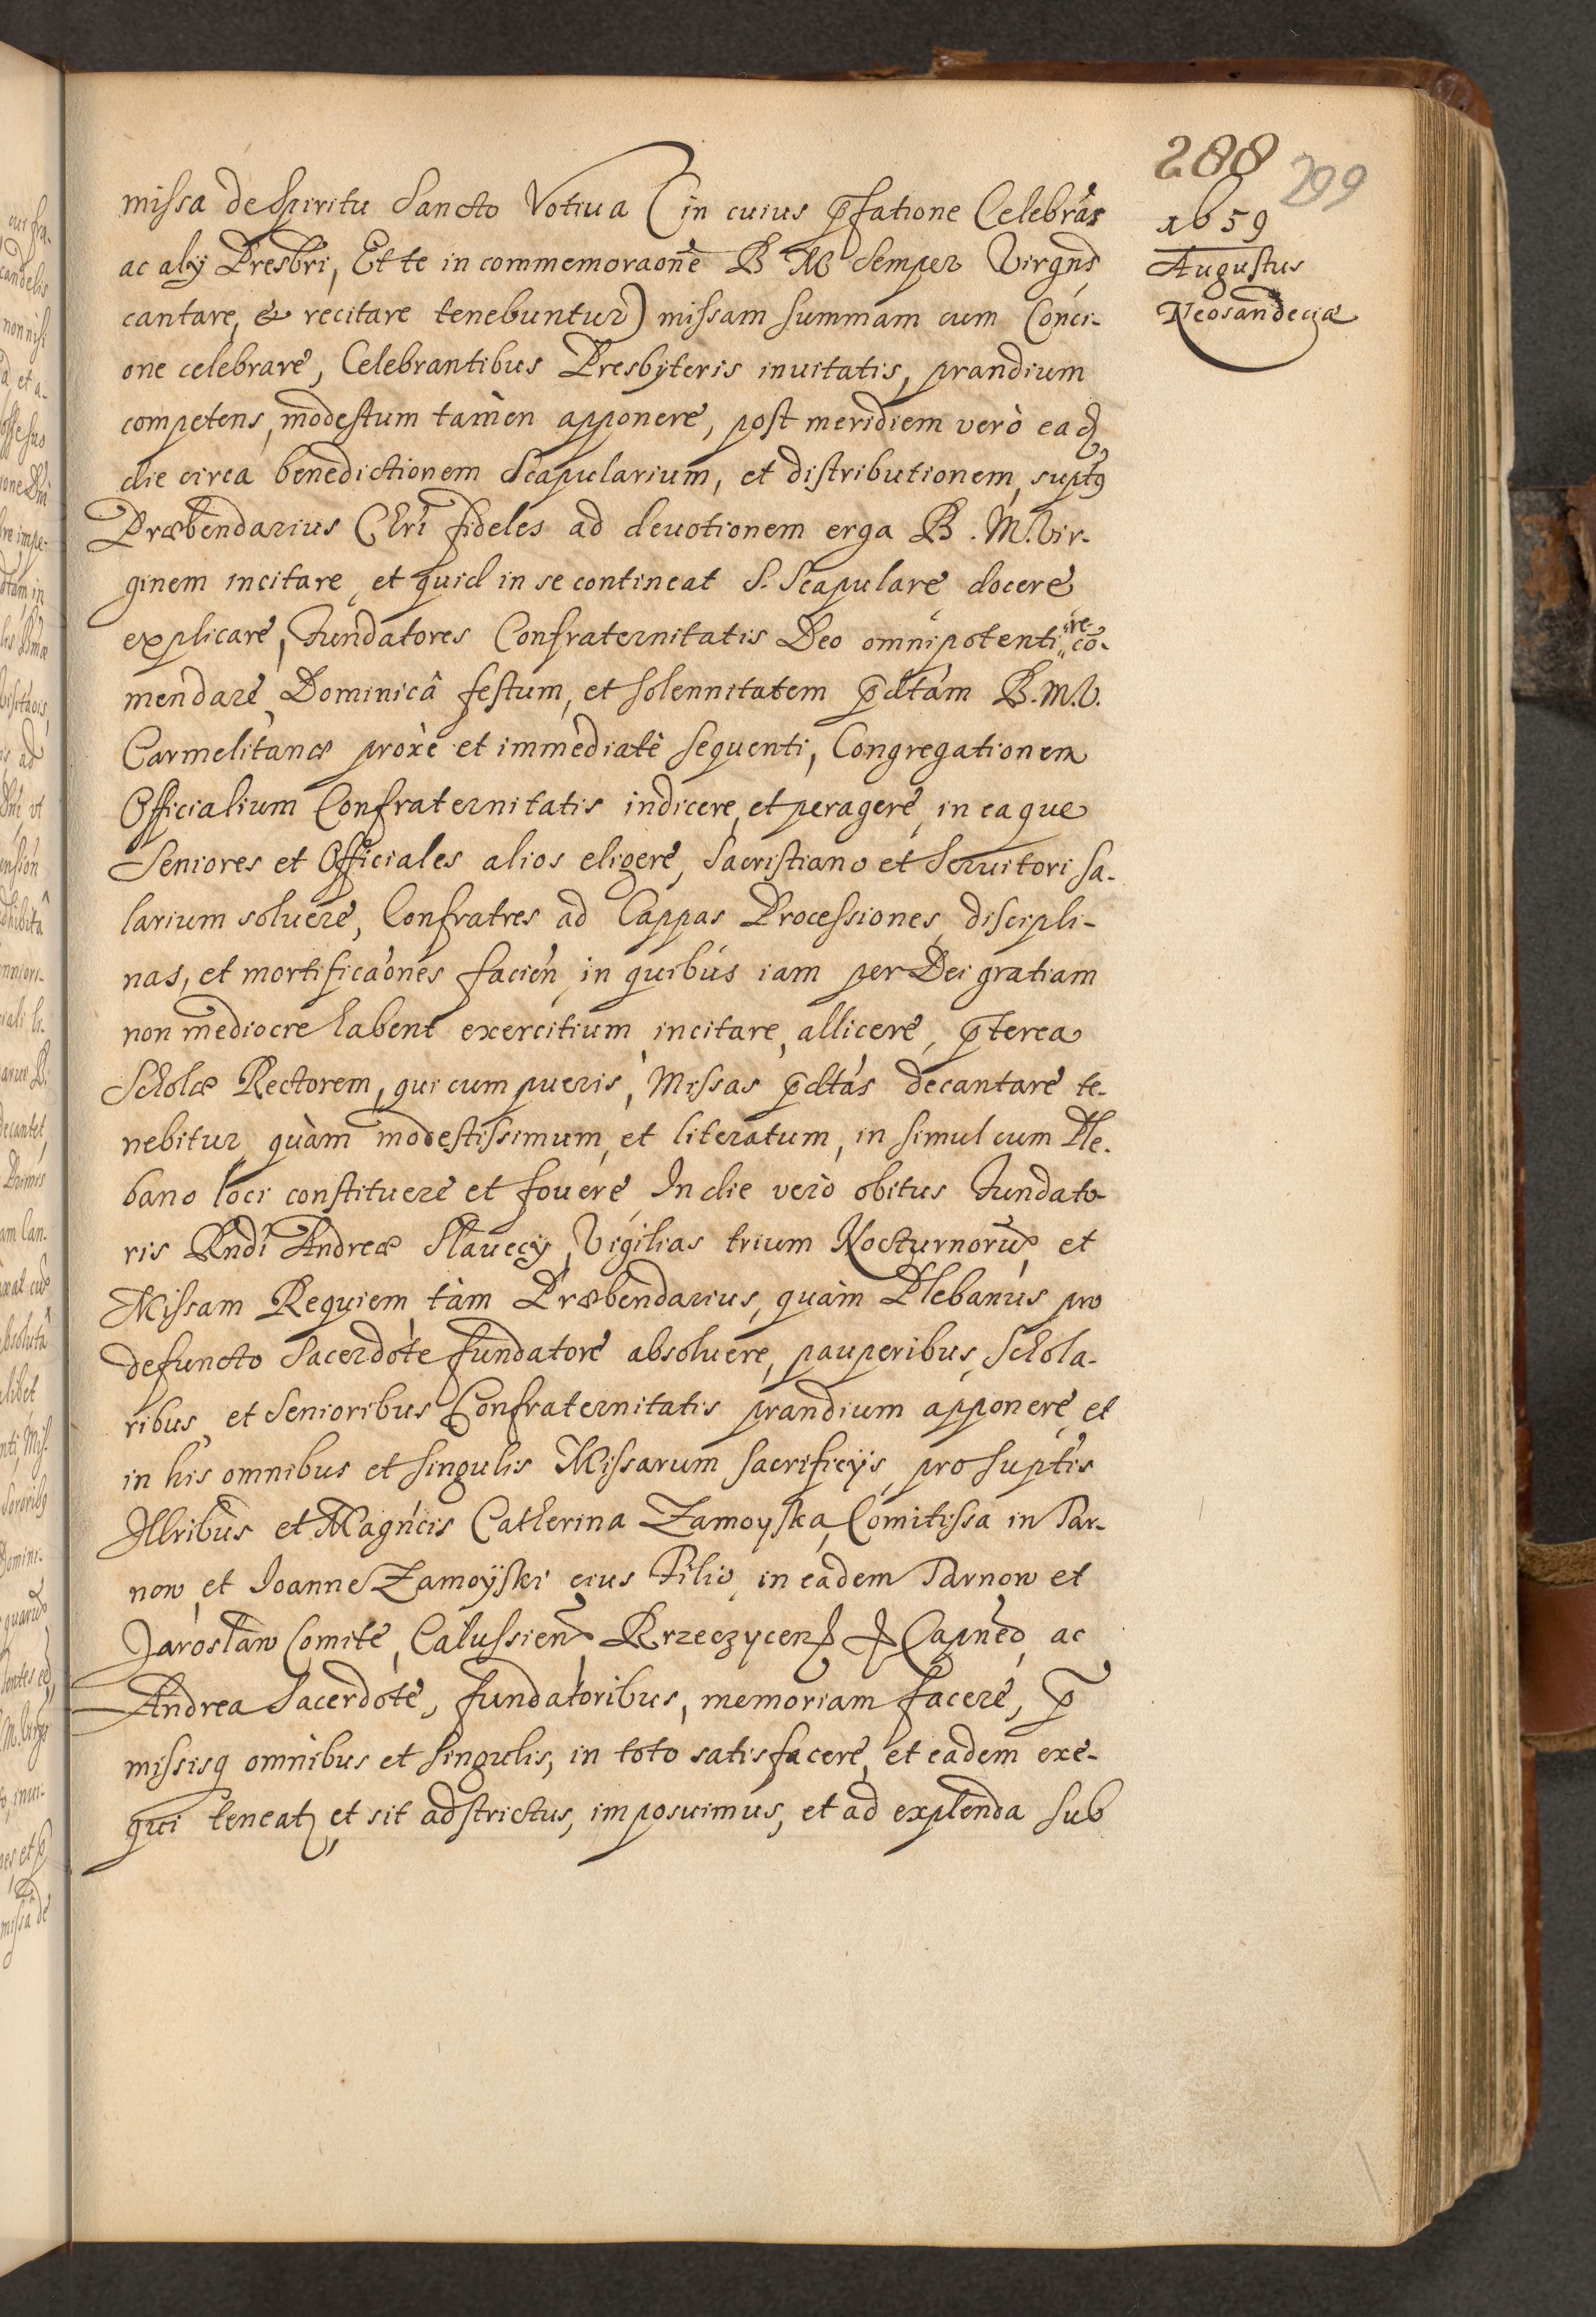 288
299
1659
Augustus
Neosandeciæ
missa de Spiritu Sancto Votiua (in cuius p̄fatione Celebrās
ac alij Presbri, Et te in commemoraonē B M Semper Virgins
cantare, & recitare tenebuntur) missam summam cum Conci-
one celebrare, Celebrantibus Presbyteris inuitatis, prandium
competens, modestum tamen apponere, post meridiem verò ead
die circa benedictionem Scapularium, et distributionem, supts
Præbendarius Chri fideles ad deuotionem erga B. M. Vir-
ginem incitare, et quid in se contineat S. Scapulare docere
explicare, Fundatores Confraternitatis Deo omnipotenti re-cō-
mendare, Dominicâ festum, et solennitatem p̄dtam B.M.V.
Carmelitanæ proxe et immediatè sequenti, Congregationem
Officialium Confraternitatis indicere, et peragere, in eaque
Seniores et Officiales alios eligere, Sacristiano et Seruitori sa-
larium soluere, Confratres ad Cappas Processiones, discipli-
nas, et mortificaónes facién, in quibús iam per Dei gratiam
non mediocre habent exercitium incitare, allicere, p̄terea
Scholæ Rectorem, qui cum pueris, Missas p̄dtás decantare te-
nebitur, quàm modestissimum, et literatum, in simul cum Ple-
bano loci constituere et fouere, In die verò obitus Fundato-
ris Rndi Andreæ Slauecij, Vigilias trium Nocturnorū, et
Missam Requiem, tàm Præbendarius, quàm Plebanus pro
defuncto Sacerdote fundatore absoluere, pauperibus, Schola-
ribus, et Senioribus Confraternitatis prandium apponere, et
in his omnibus et singulis Missarum sacrificijs, pro suptis
Illribus et Magncis Catherina Zamoyska, Comitissa in Tar-
now, et Ioanne Zamoÿski eius Filio, in eadem Tarnow et
Jaroslaw Comite, Calussien, Rzeczycen Capneo, ac
Andrea Sacerdote, fundatoribus, memoriam facere, p̄
missisq omnibus et singulis, in toto satisfacere, et eadem exe-
qui teneat, et sit adstrictus, imposuimus, et ad explenda sub